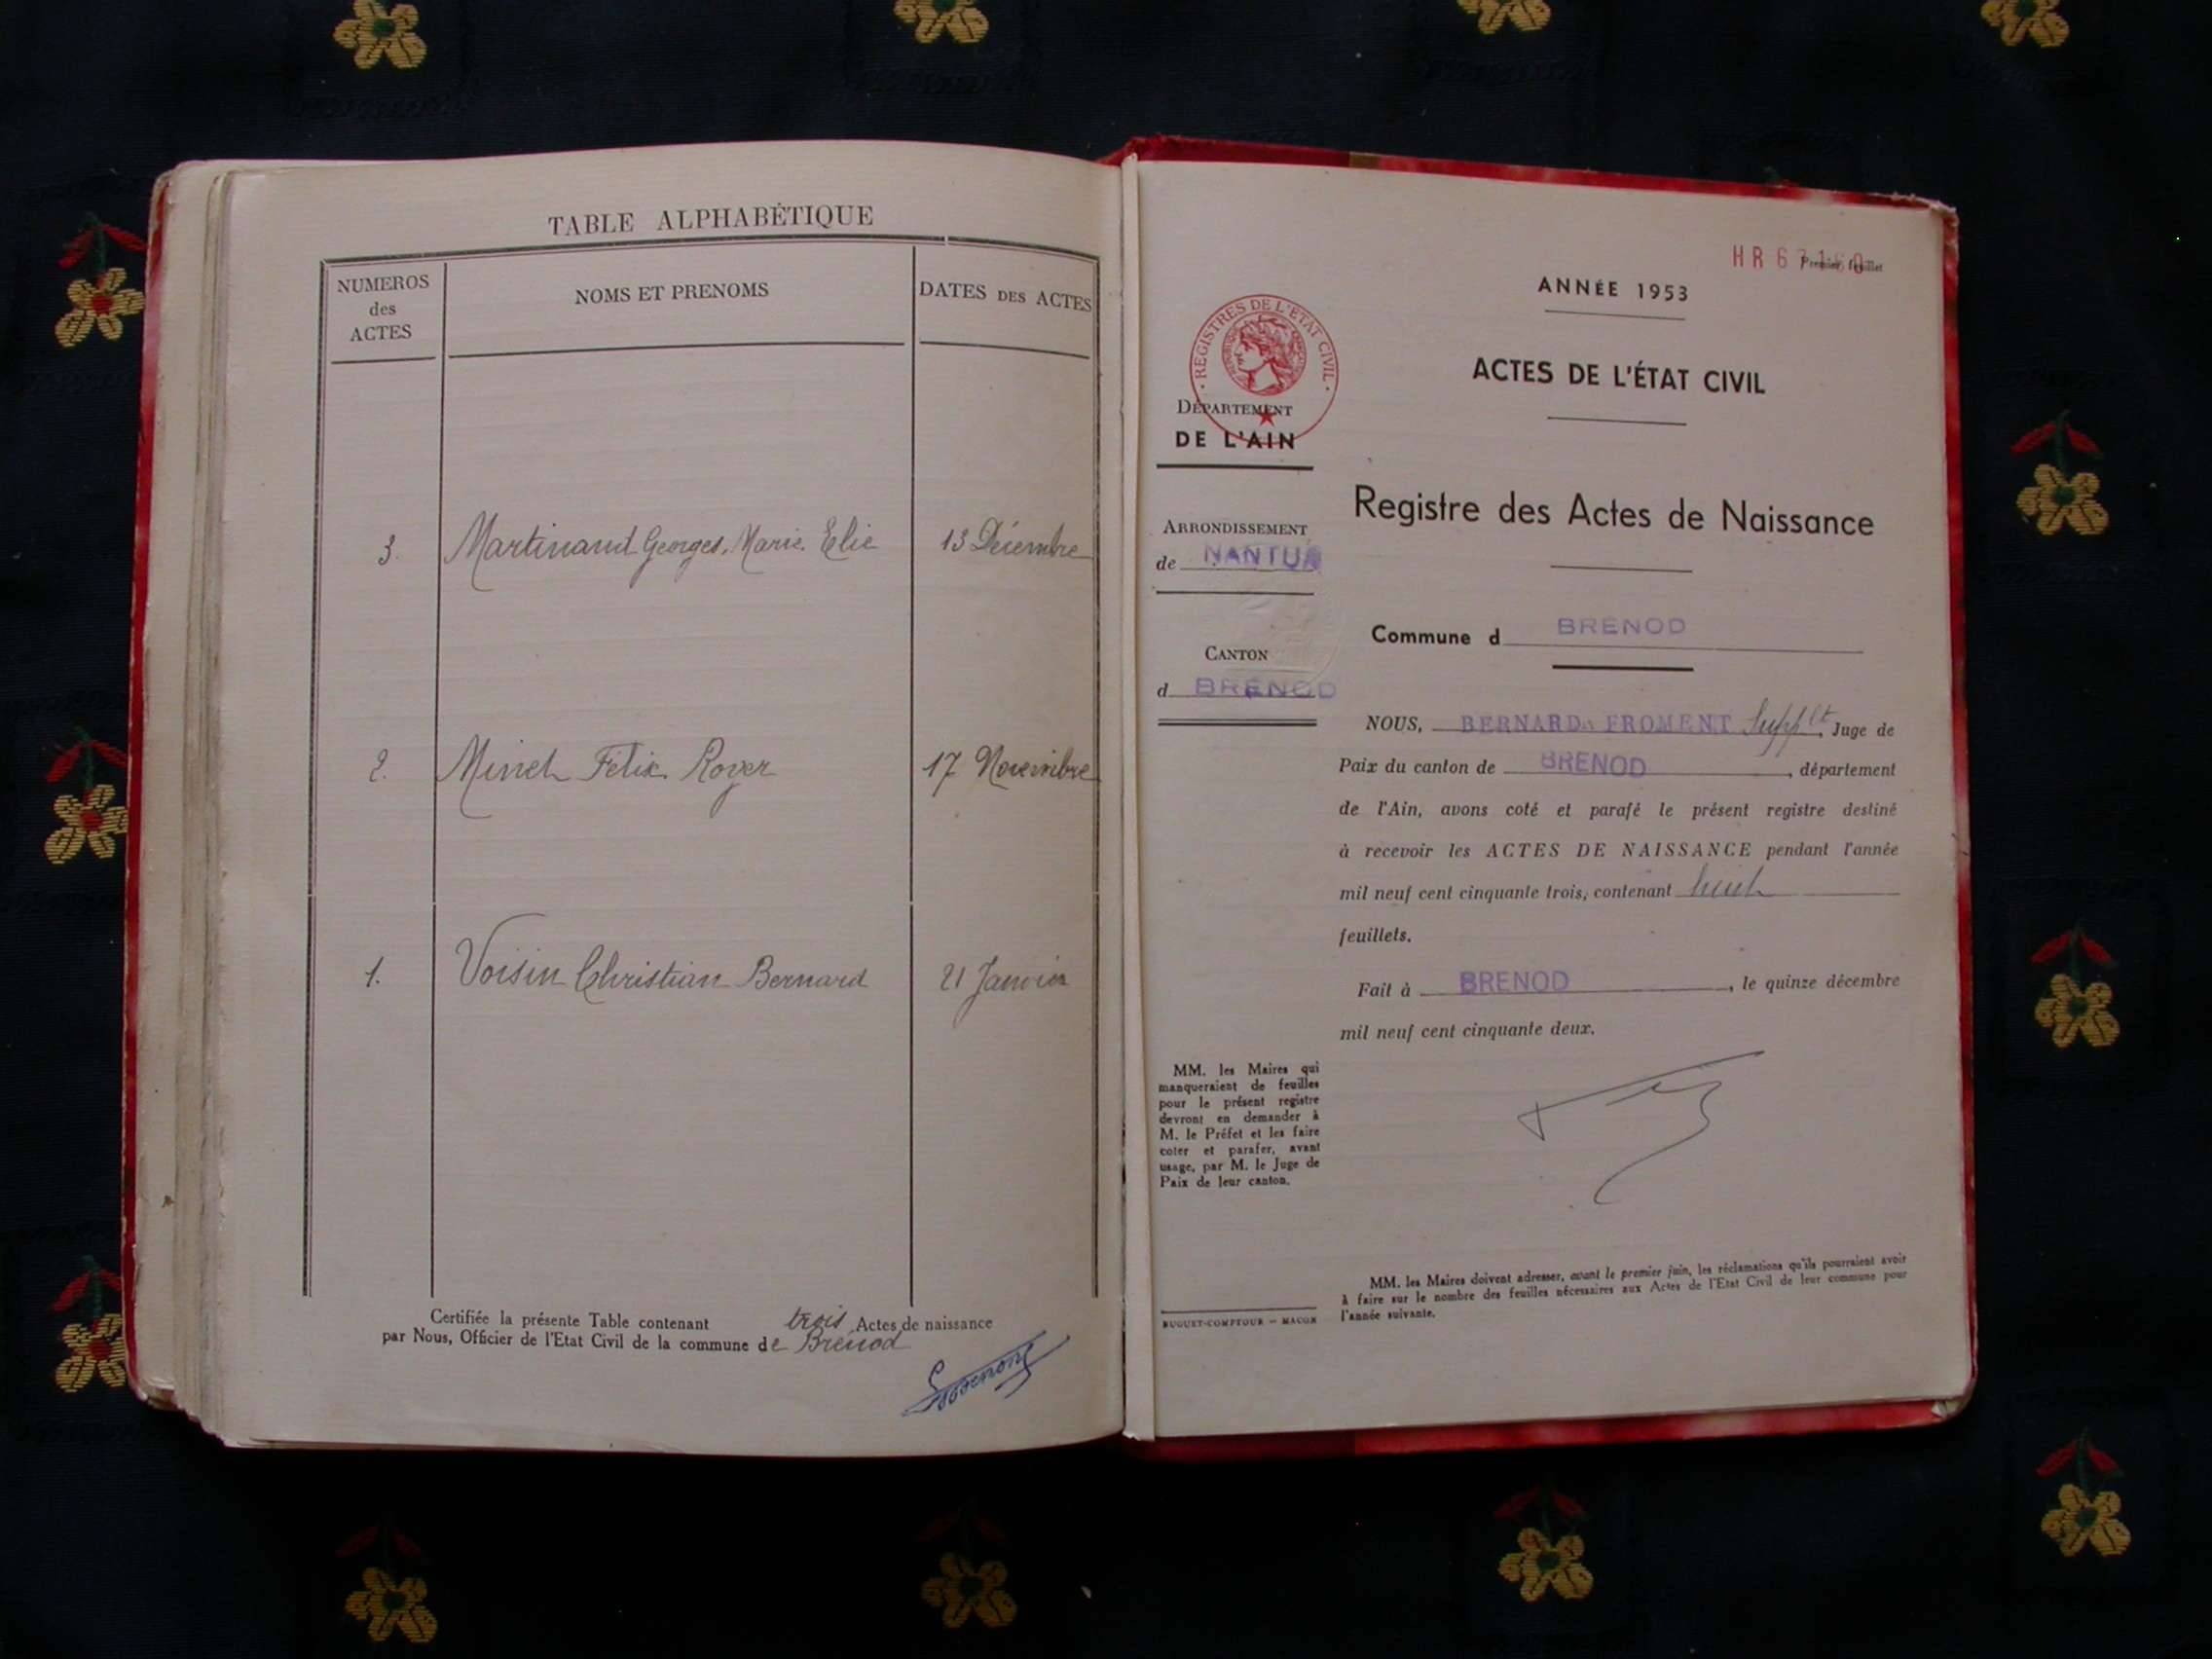 TABLE ALPHABÉTIQUE
NUMEROS des ACTES
NOMS ET PRENOMS
DATES DES ACTES
3. Martinand Georges, Marie Elie 13 Décembre
2. Felix Roger 17 Novembre
1. Voisin Christian Bernard 21 Janvier
Certifiée la présente Table contenant trois Actes de naissance
par Nous, Officier de l'Etat Civil de la commune de Brénod
HR 67 Premier feuillet
ANNÉE 1953
REGISTRES DE L'ETAT CIVIL
ACTES DE L'ÉTAT CIVIL
DÉPARTEMENT
DE L'AIN
Registre des Actes de Naissance
ARRONDISSEMENT
de NANTUA
Commune d BRENOD
CANTON
d BRENOD
NOUS, BERNARD FROMENT Supplt, Juge de
Paix du canton de BRENOD, département
de l'Ain, avons coté et parafé le présent registre destiné
à recevoir les ACTES DE NAISSANCE pendant l'année
mil neuf cent cinquante trois, contenant huit
feuillets.
Fait à BRENOD, le quinze décembre
mil neuf cent cinquante deux.
MM. les Maires qui
manqueraient de feuilles
pour le présent registre
devront en demander à
M. le Préfet et les faire
coter et parafer, avant
usage, par M. le Juge de
Paix de leur canton.
MM. les Maires doivent adresser, avant le premier juin, les réclamations qu'ils pourraient avoir
à faire sur le nombre des feuilles nécessaires aux Actes de l'Etat Civil de leur commune pour
l'année suivante.
BUGUET-COMPTOUR - MACON